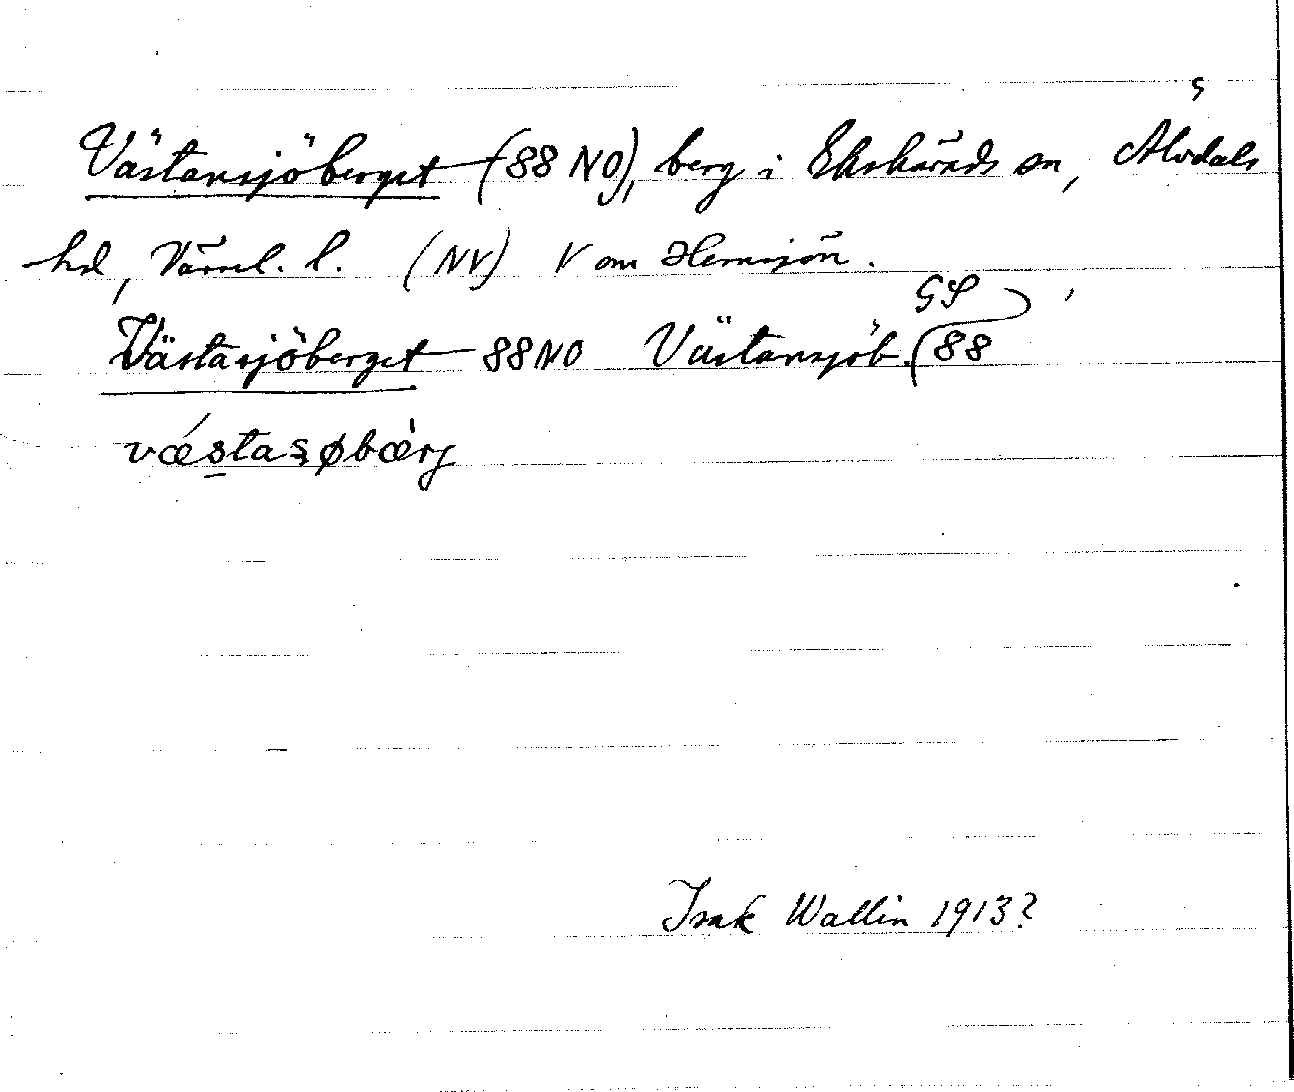 Västansjöberget (88 NO), berg i Ekshärads sn, Älvdals
hd, Värml. l. (NV) V om Hemsjön.
Västasjöberget 88NO Västansjöb. (88 GS
væstasøbærj
Isak Wallin 1913?